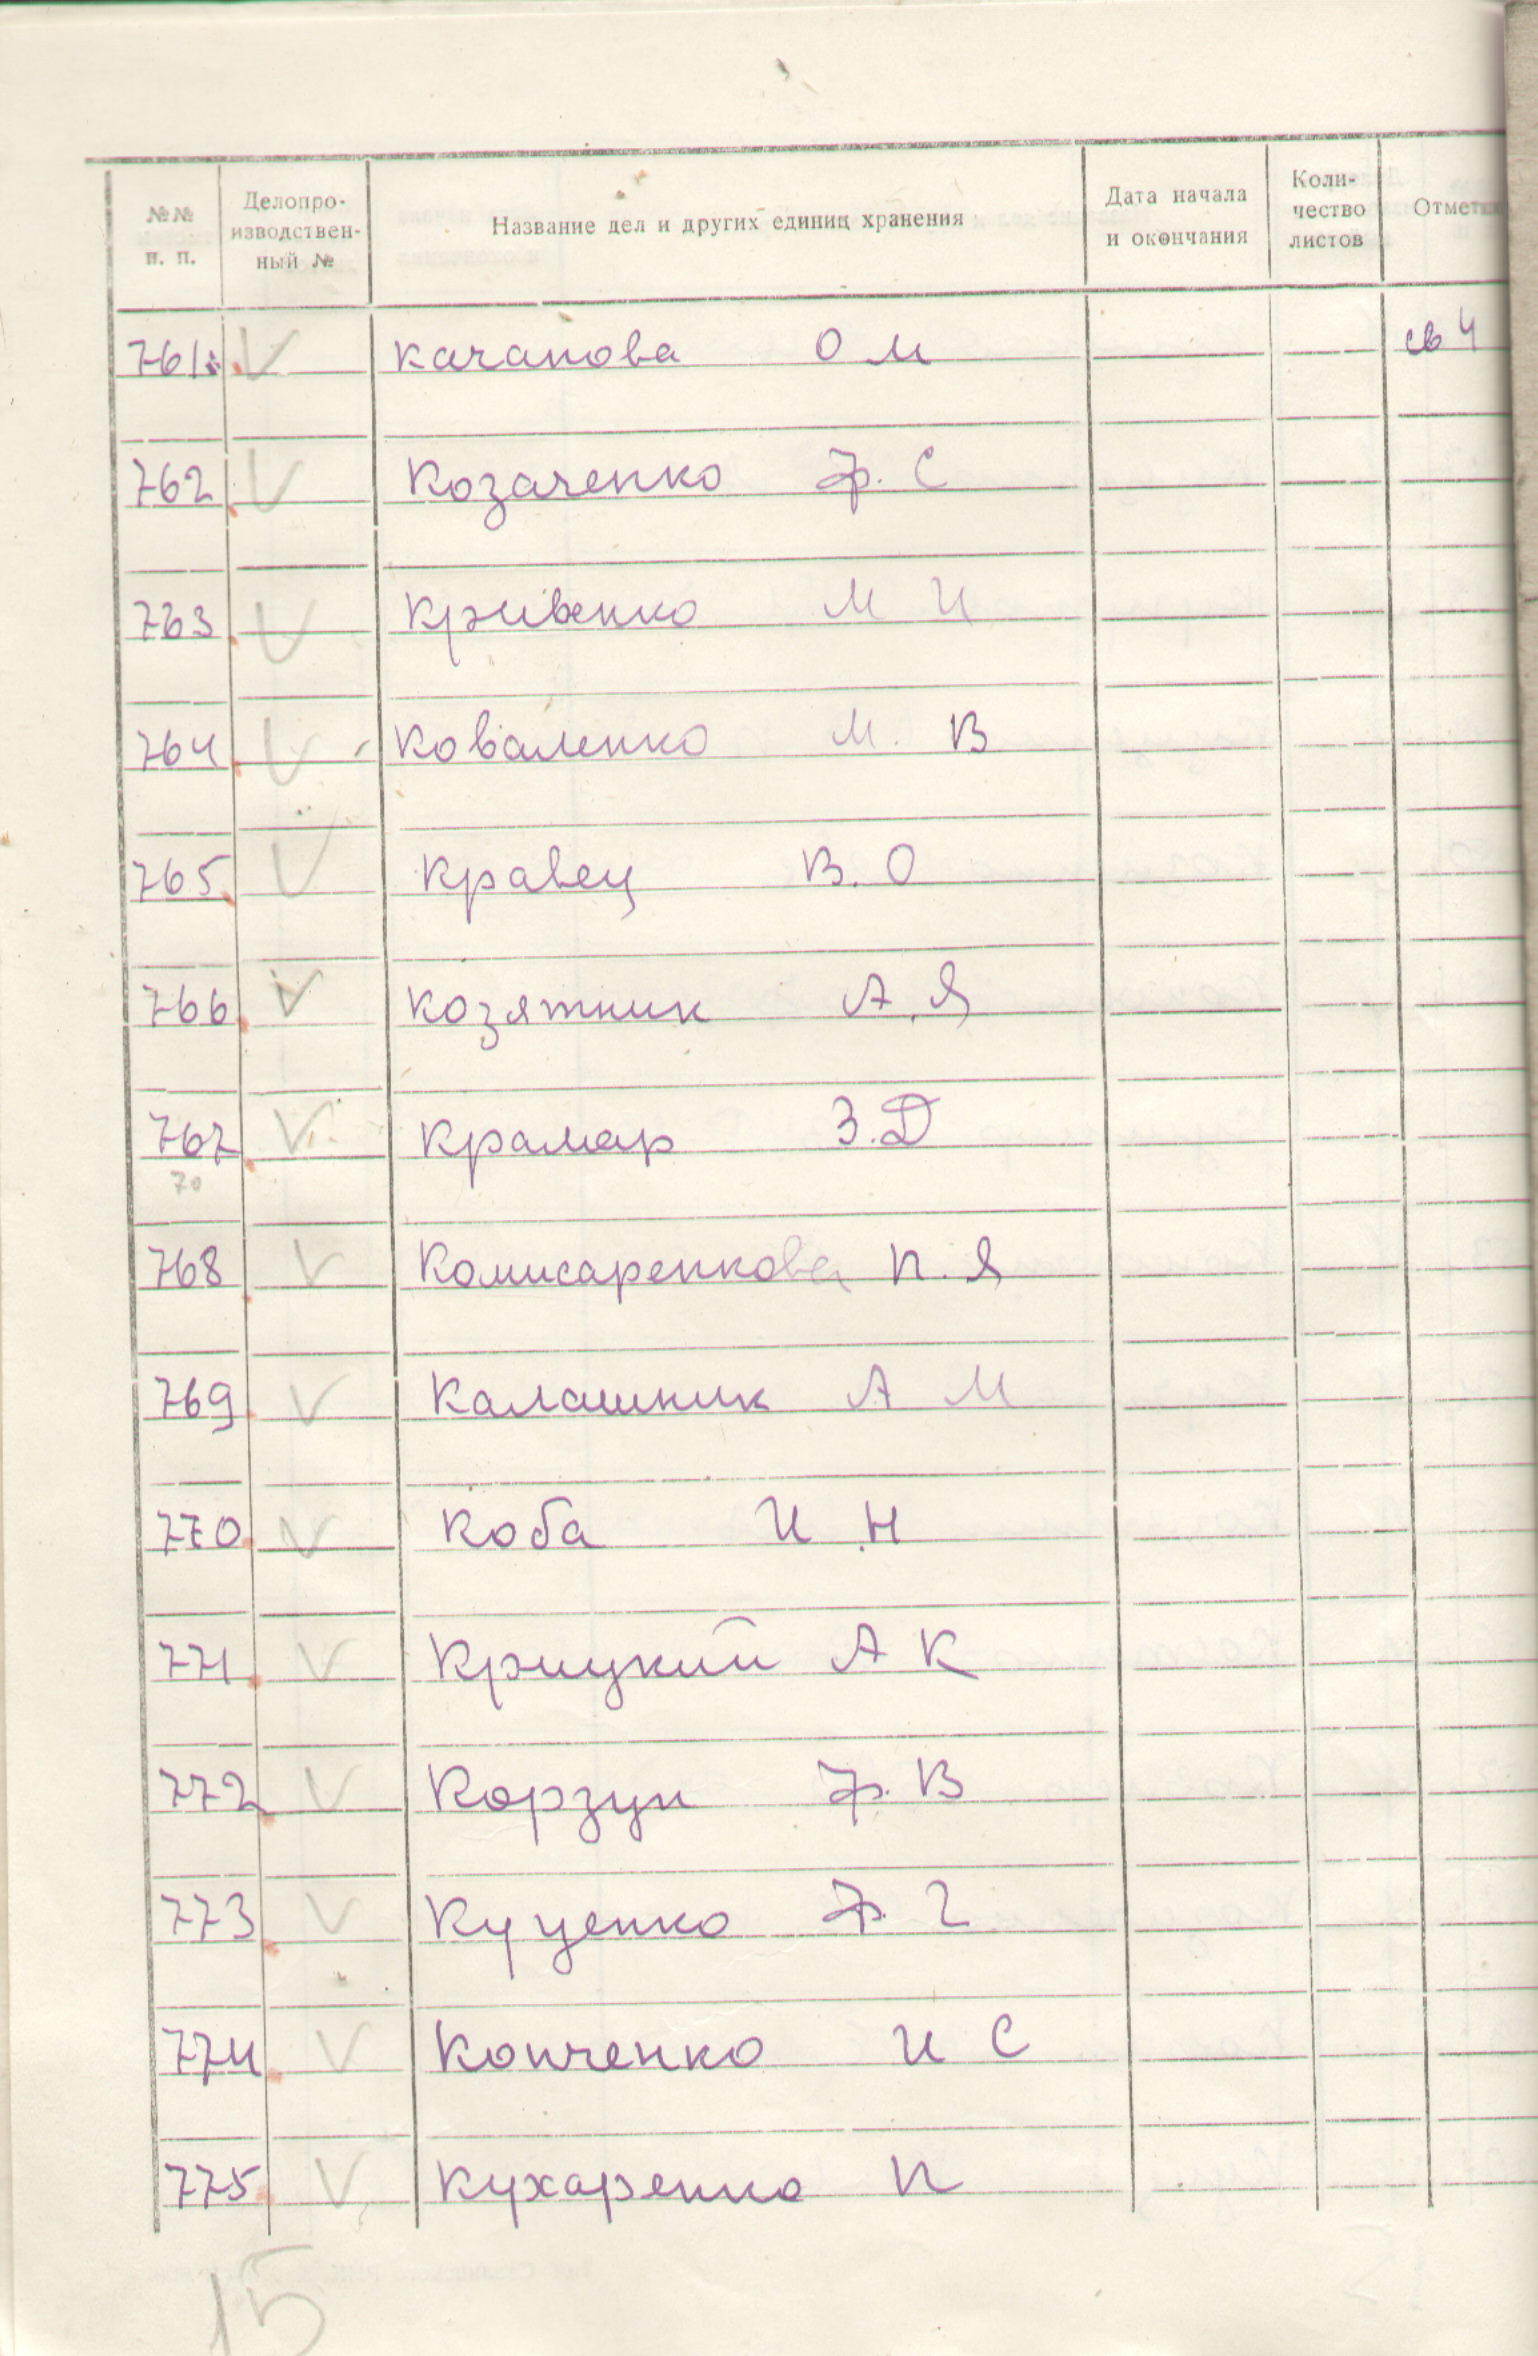 №№ п. п.
Делопро-
изводствен-
ный №
Название дел и других единиц хранения
Дата начала
и окончания
Коли-
чество
листов
Отметк
761 V Качанова О М св 4
762 V Козаченко Ф. С
763 V Кривенко М И
764 V Коваленко М. В
765 V Кравец В. О
766 V Козятник А. Я
767 V Крамар З. Д
70
768 V Комисаренкова П. Я
769 V Калашник А М
770 V Коба И Н
771 V Крицкий А К
772 V Корзун Ф. В
773 V Куценко Ф. Г
774 V Копченко И С
775 V Кухаренко П
15